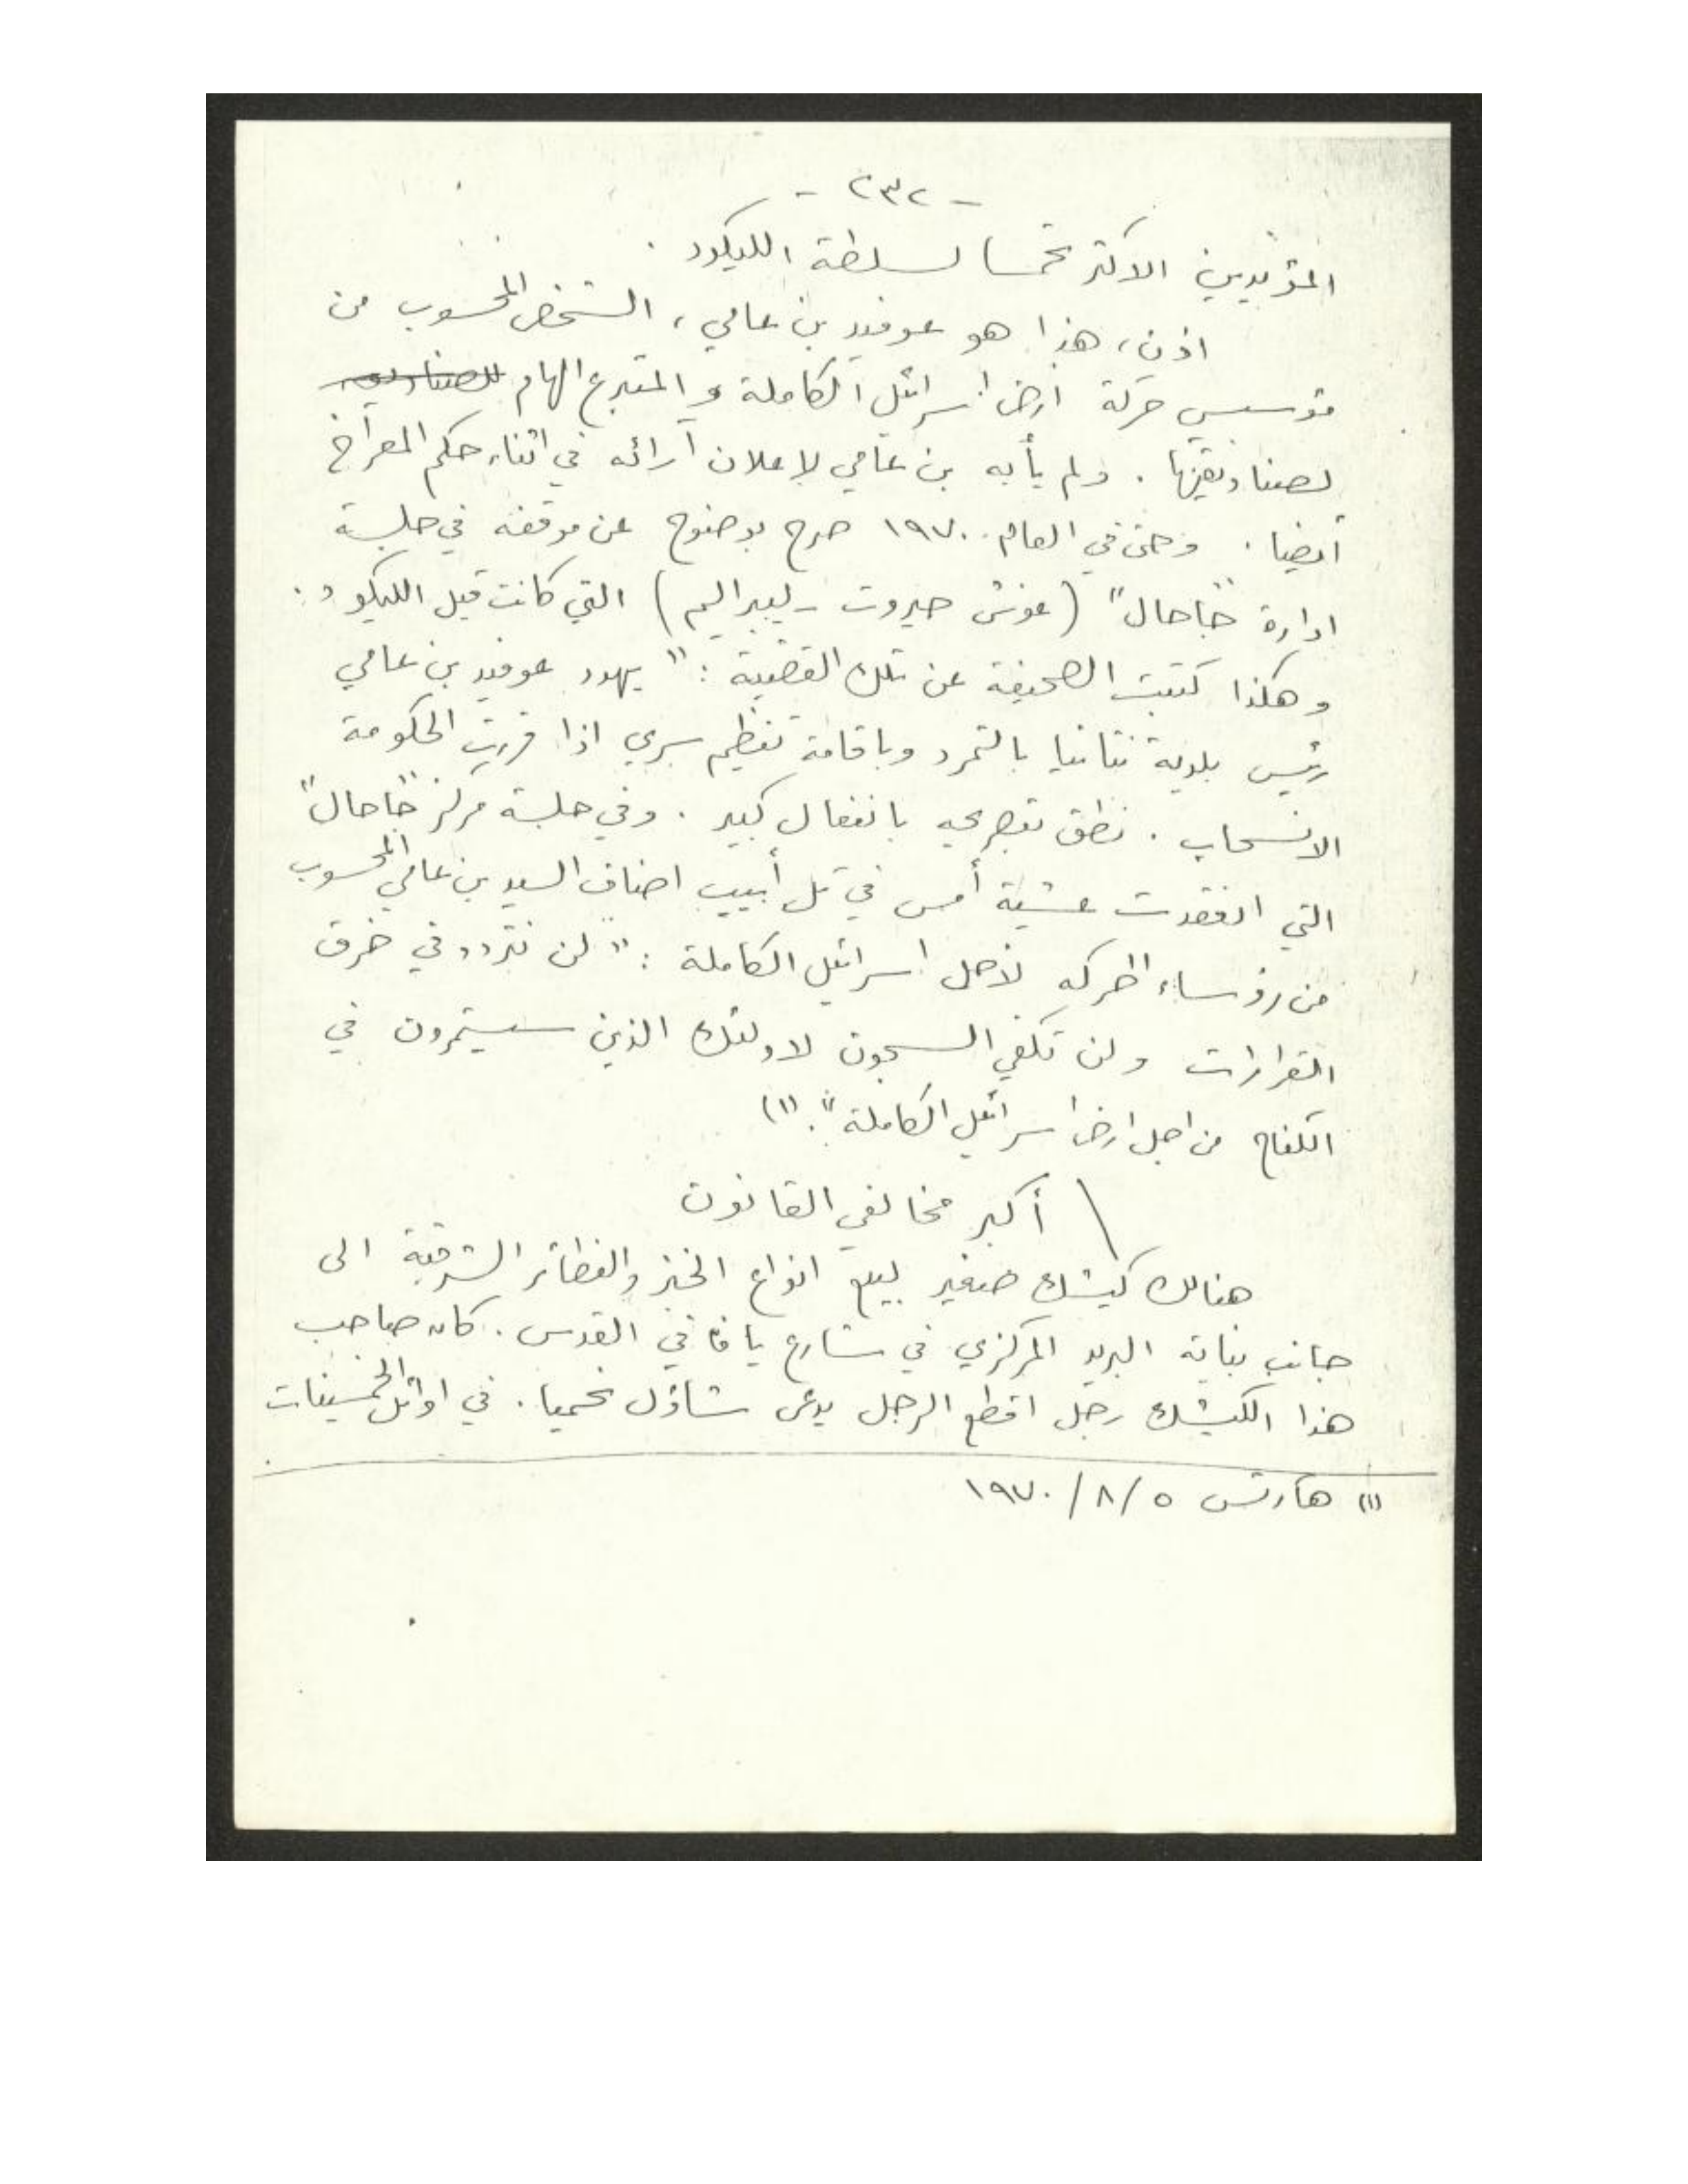 - ٢٣٢ -
المؤيدين الاكثر تحمسا لسلطة الليكود .
اذن، هذا هو عوفيد بن عامي، الشخص المحسوب من
مؤسسي حركة ارض اسرائيل الكاملة والمتبرع الهام
لصناديقها . ولم يأبه بن عامي لإعلان آرائه في اثناء حكم المعراخ
أيضا . وحتى في العام ١٩٧٠ صرح بوضوح عن موقفه في جلسة
ادارة "جاحال" (غوش حيروت - ليبراليم) التي كانت قبل الليكود .
وهكذا كتبت الصحيفة عن تلك القضية : " يهدد عوفيد بن عامي
رئيس بلدية نتانيا بالتمرد وباقامة تنظيم سري اذا قررت الحكومة
الانسحاب . نطق تصريحه بانفعال كبير . وفي جلسة مركز "جاحال"
التي انعقدت عشية أمس في تل أبيب اضاف السيد بن عامي المحسوب
من رؤساء الحركه لأجل اسرائيل الكاملة : " لن نتردد في خرق
القرارات ولن تكفي السجون لاولئك الذين سيستمرون في
الكفاح من اجل ارض اسرائيل الكاملة ". (١)
أكبر مخالفي القانون
هنالك كيشك صغير لبيع انواع الخبز والفطائر الشرقية الى
جانب بناية البريد المركزي في شارع يافا في القدس . كان صاحب
هذا الكيشك رجل اقطع الرجل يدعى شاؤل نحميا . في اوائل الخمسينات
(١) هآرتس ٥ /٨ /١٩٧٠